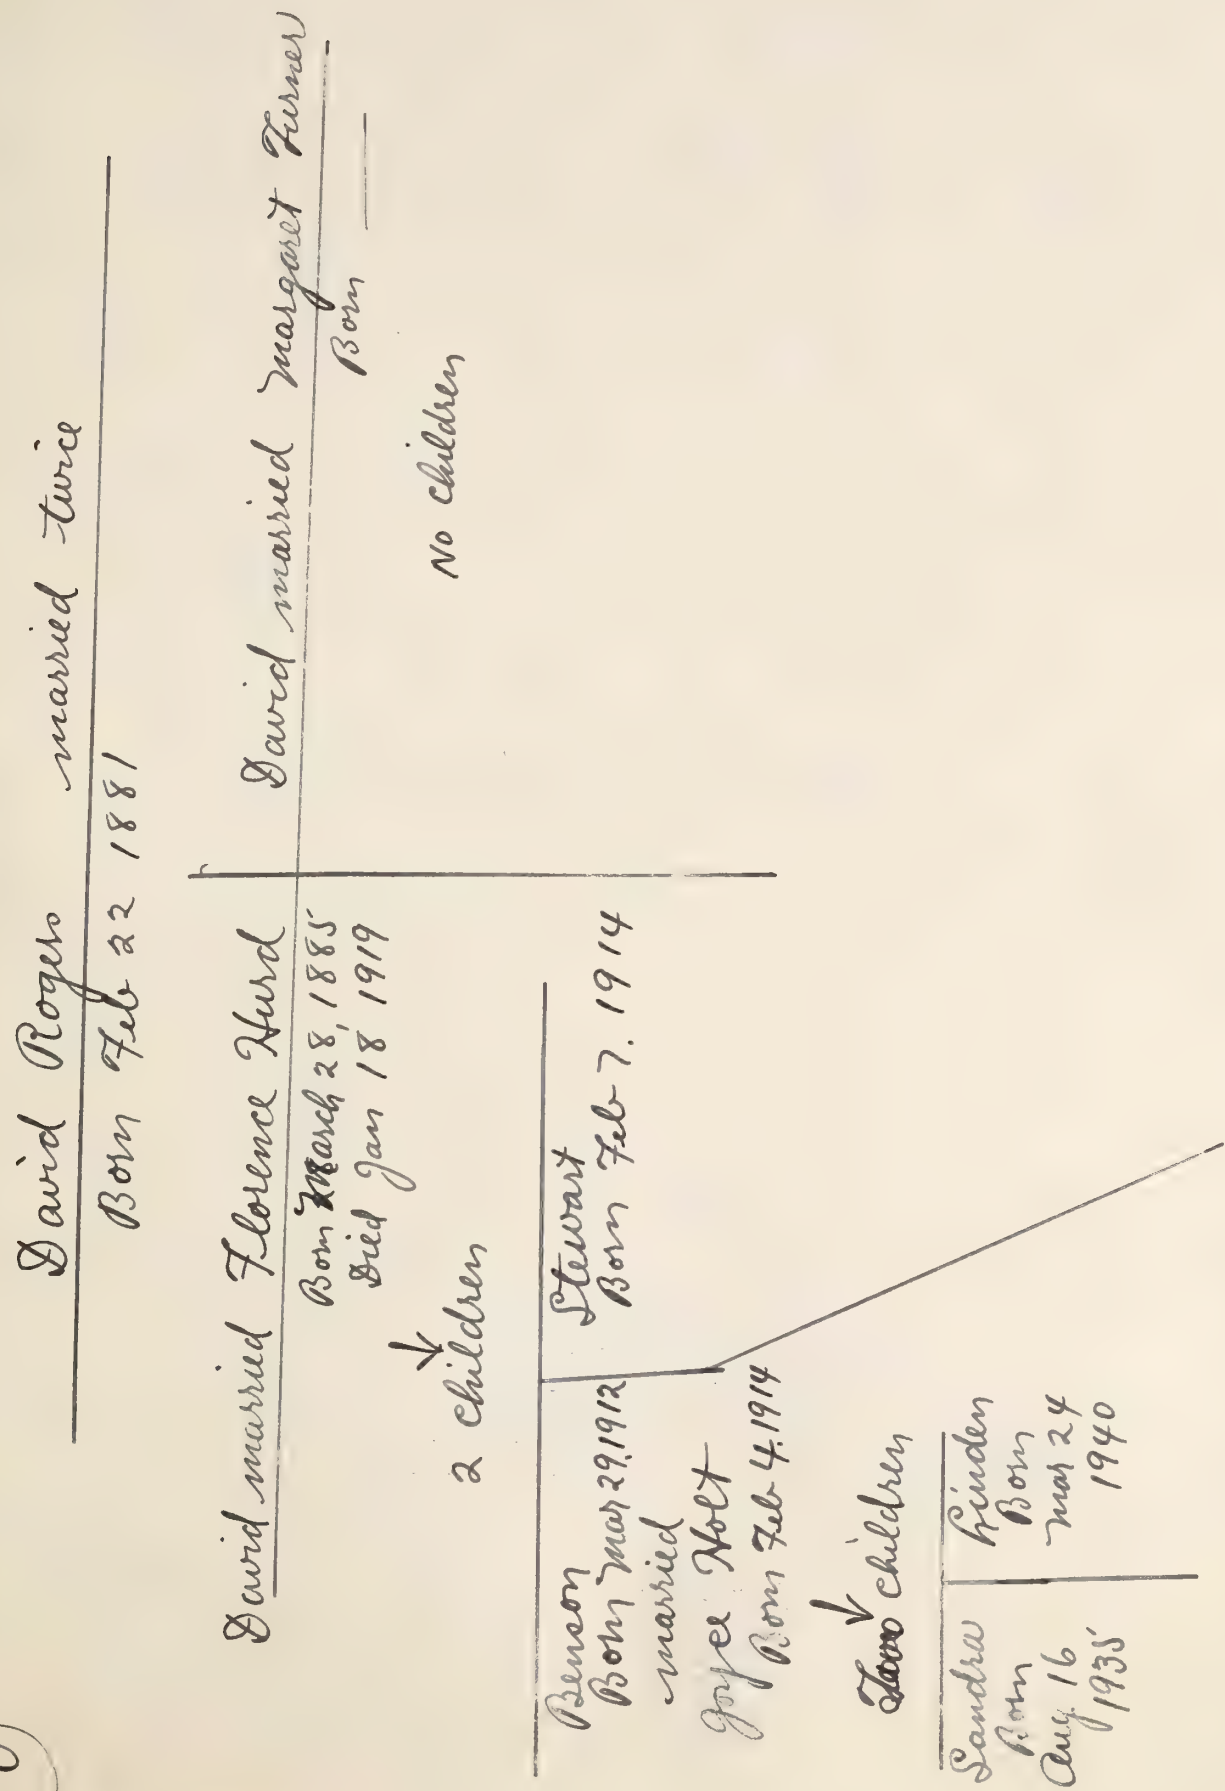 David Rogers married twice
Born Feb 22 1881
David married Florence Hurd
Born March 28, 1885
Died Jan 18 1919
2 children
David married Margaret Turner
Born
No children
Benson
Born Mar 29, 1912
married
Joyce Holt
Born Feb 4. 1914
Stewart
Born Feb 7. 1914
Two children
Sandra
Born
Aug. 16
1935
Linden
Born
Mar 24
1940